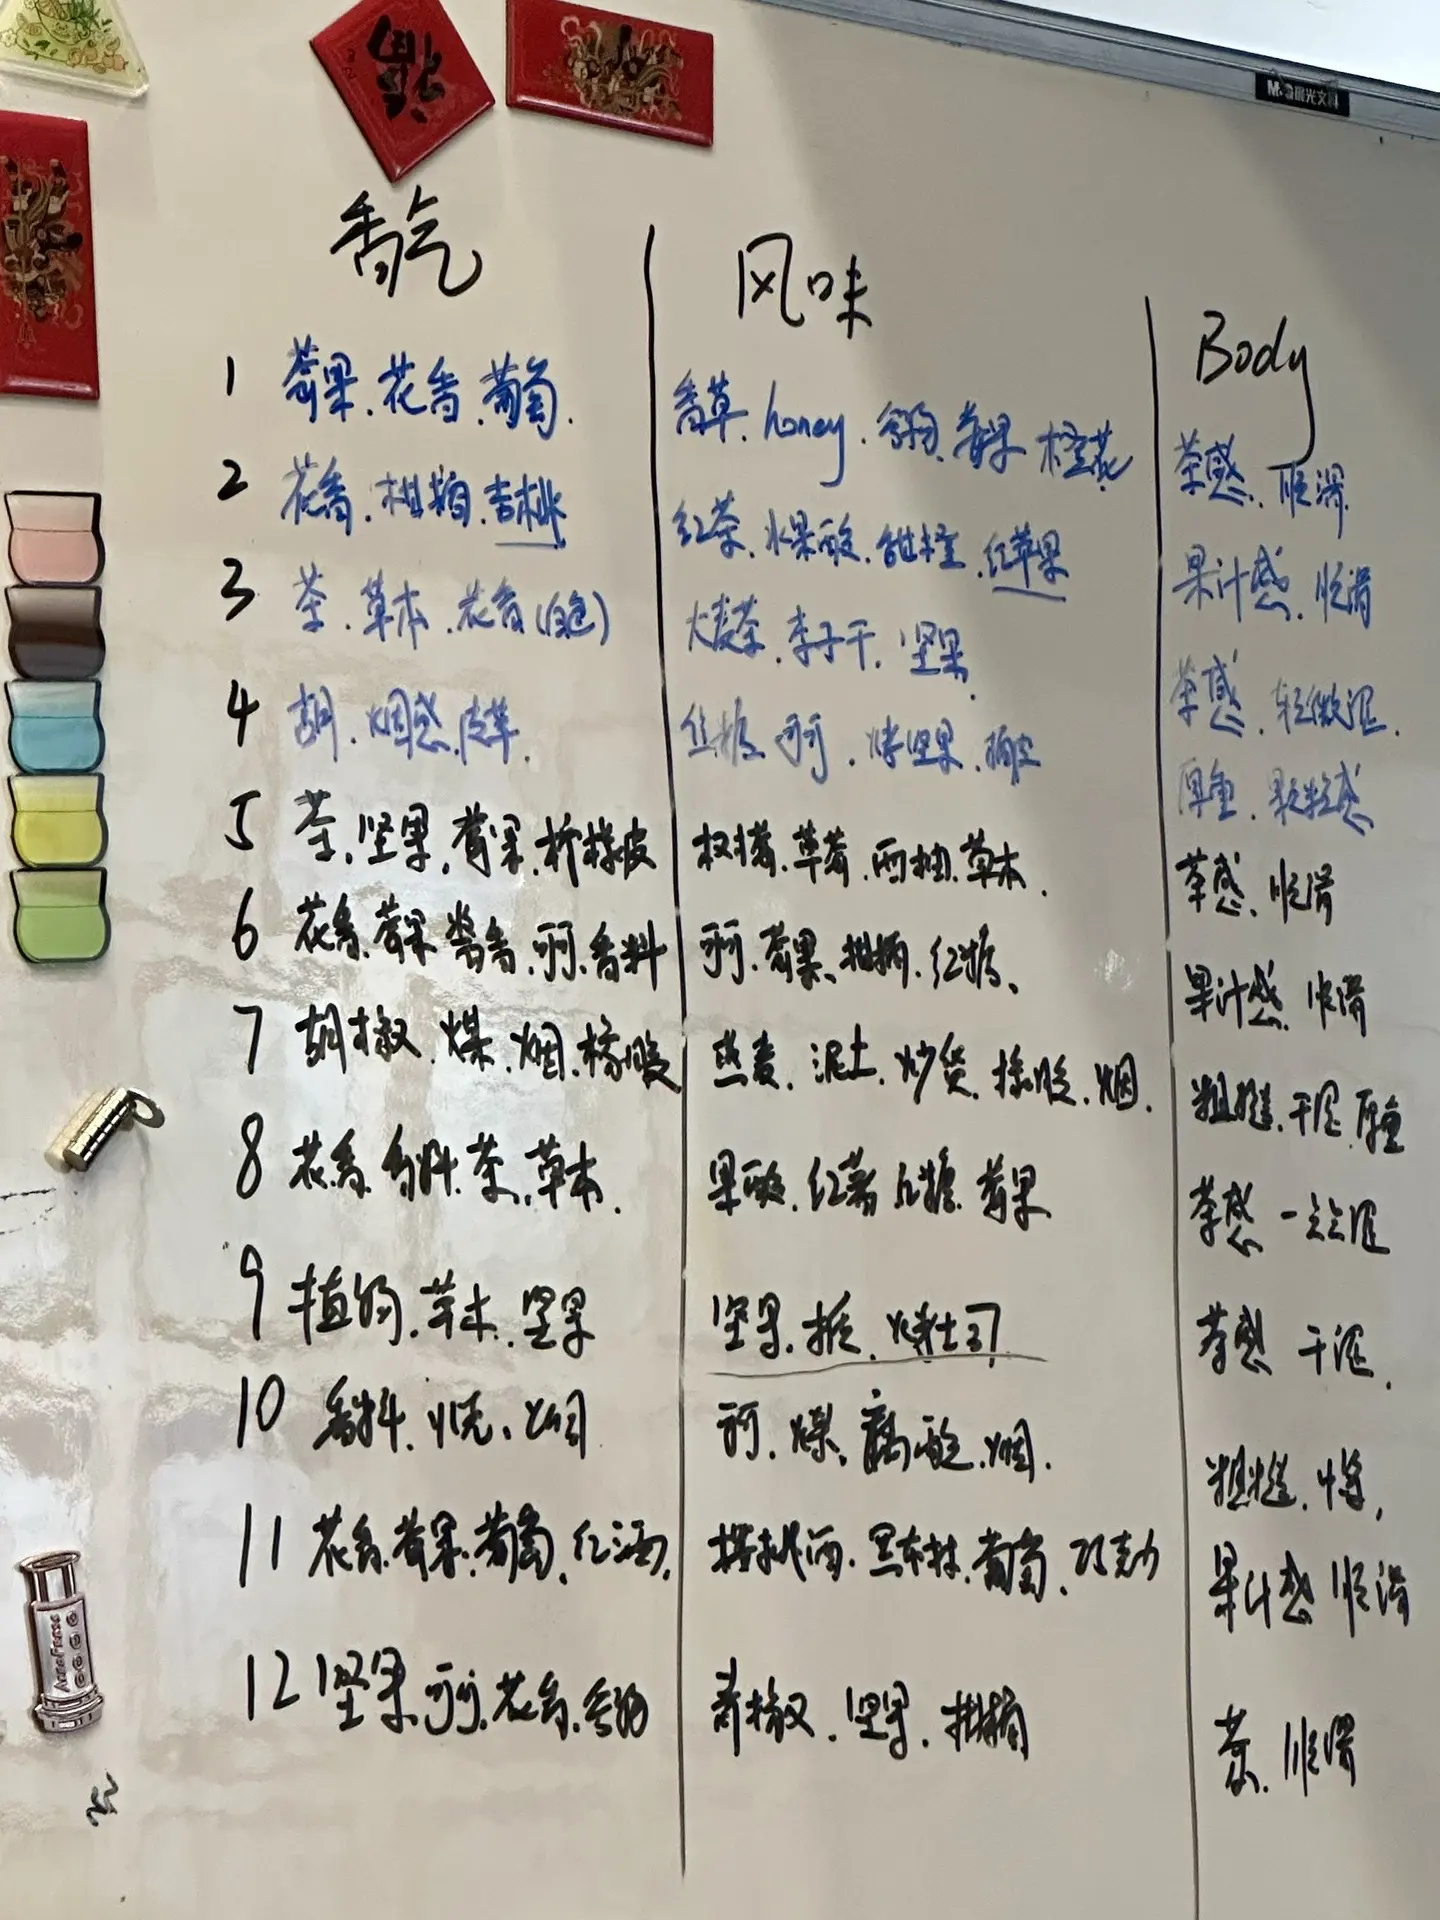 M&G晨光文具
香气 风味 Body
1 莓果、花香、葡萄. 香草、honey、谷物、莓果 橙花 茶感、顺滑
2 花香、柑橘、杏桃 红茶、水果酸、甜橙、红苹果 果汁感、顺滑
3 茶、草本、花香(白色) 大麦茶、李子干、坚果 茶感、轻微涩.
4 烟感、皮革. 焦糖、可可、烤坚果 厚重、颗粒感
5 茶、坚果、莓果、柠檬皮 草莓、西柚、草本. 茶感、顺滑
6 花香、莓果 可可、香料 可可、莓果、柑橘、红糖、 果汁感、顺滑
7 胡椒、煤、烟、橡胶 燕麦、泥土、炒货、橡胶、烟. 粗糙、干涩、厚重
8 花香、香料、茶、草本. 果酸、红薯 红糖 莓果 茶感 一点点涩
9 植物、草本、坚果 坚果、烤吐司 茶感 干涩.
10 香料、烟 可可、煤、酸、烟. 粗糙、
11 花香、莓果、葡萄、红酒, 黑布林、葡萄、巧克力 果汁感 顺滑
12 坚果、可可、花香、谷物 坚果、柑橘 茶、顺滑
AeroPress